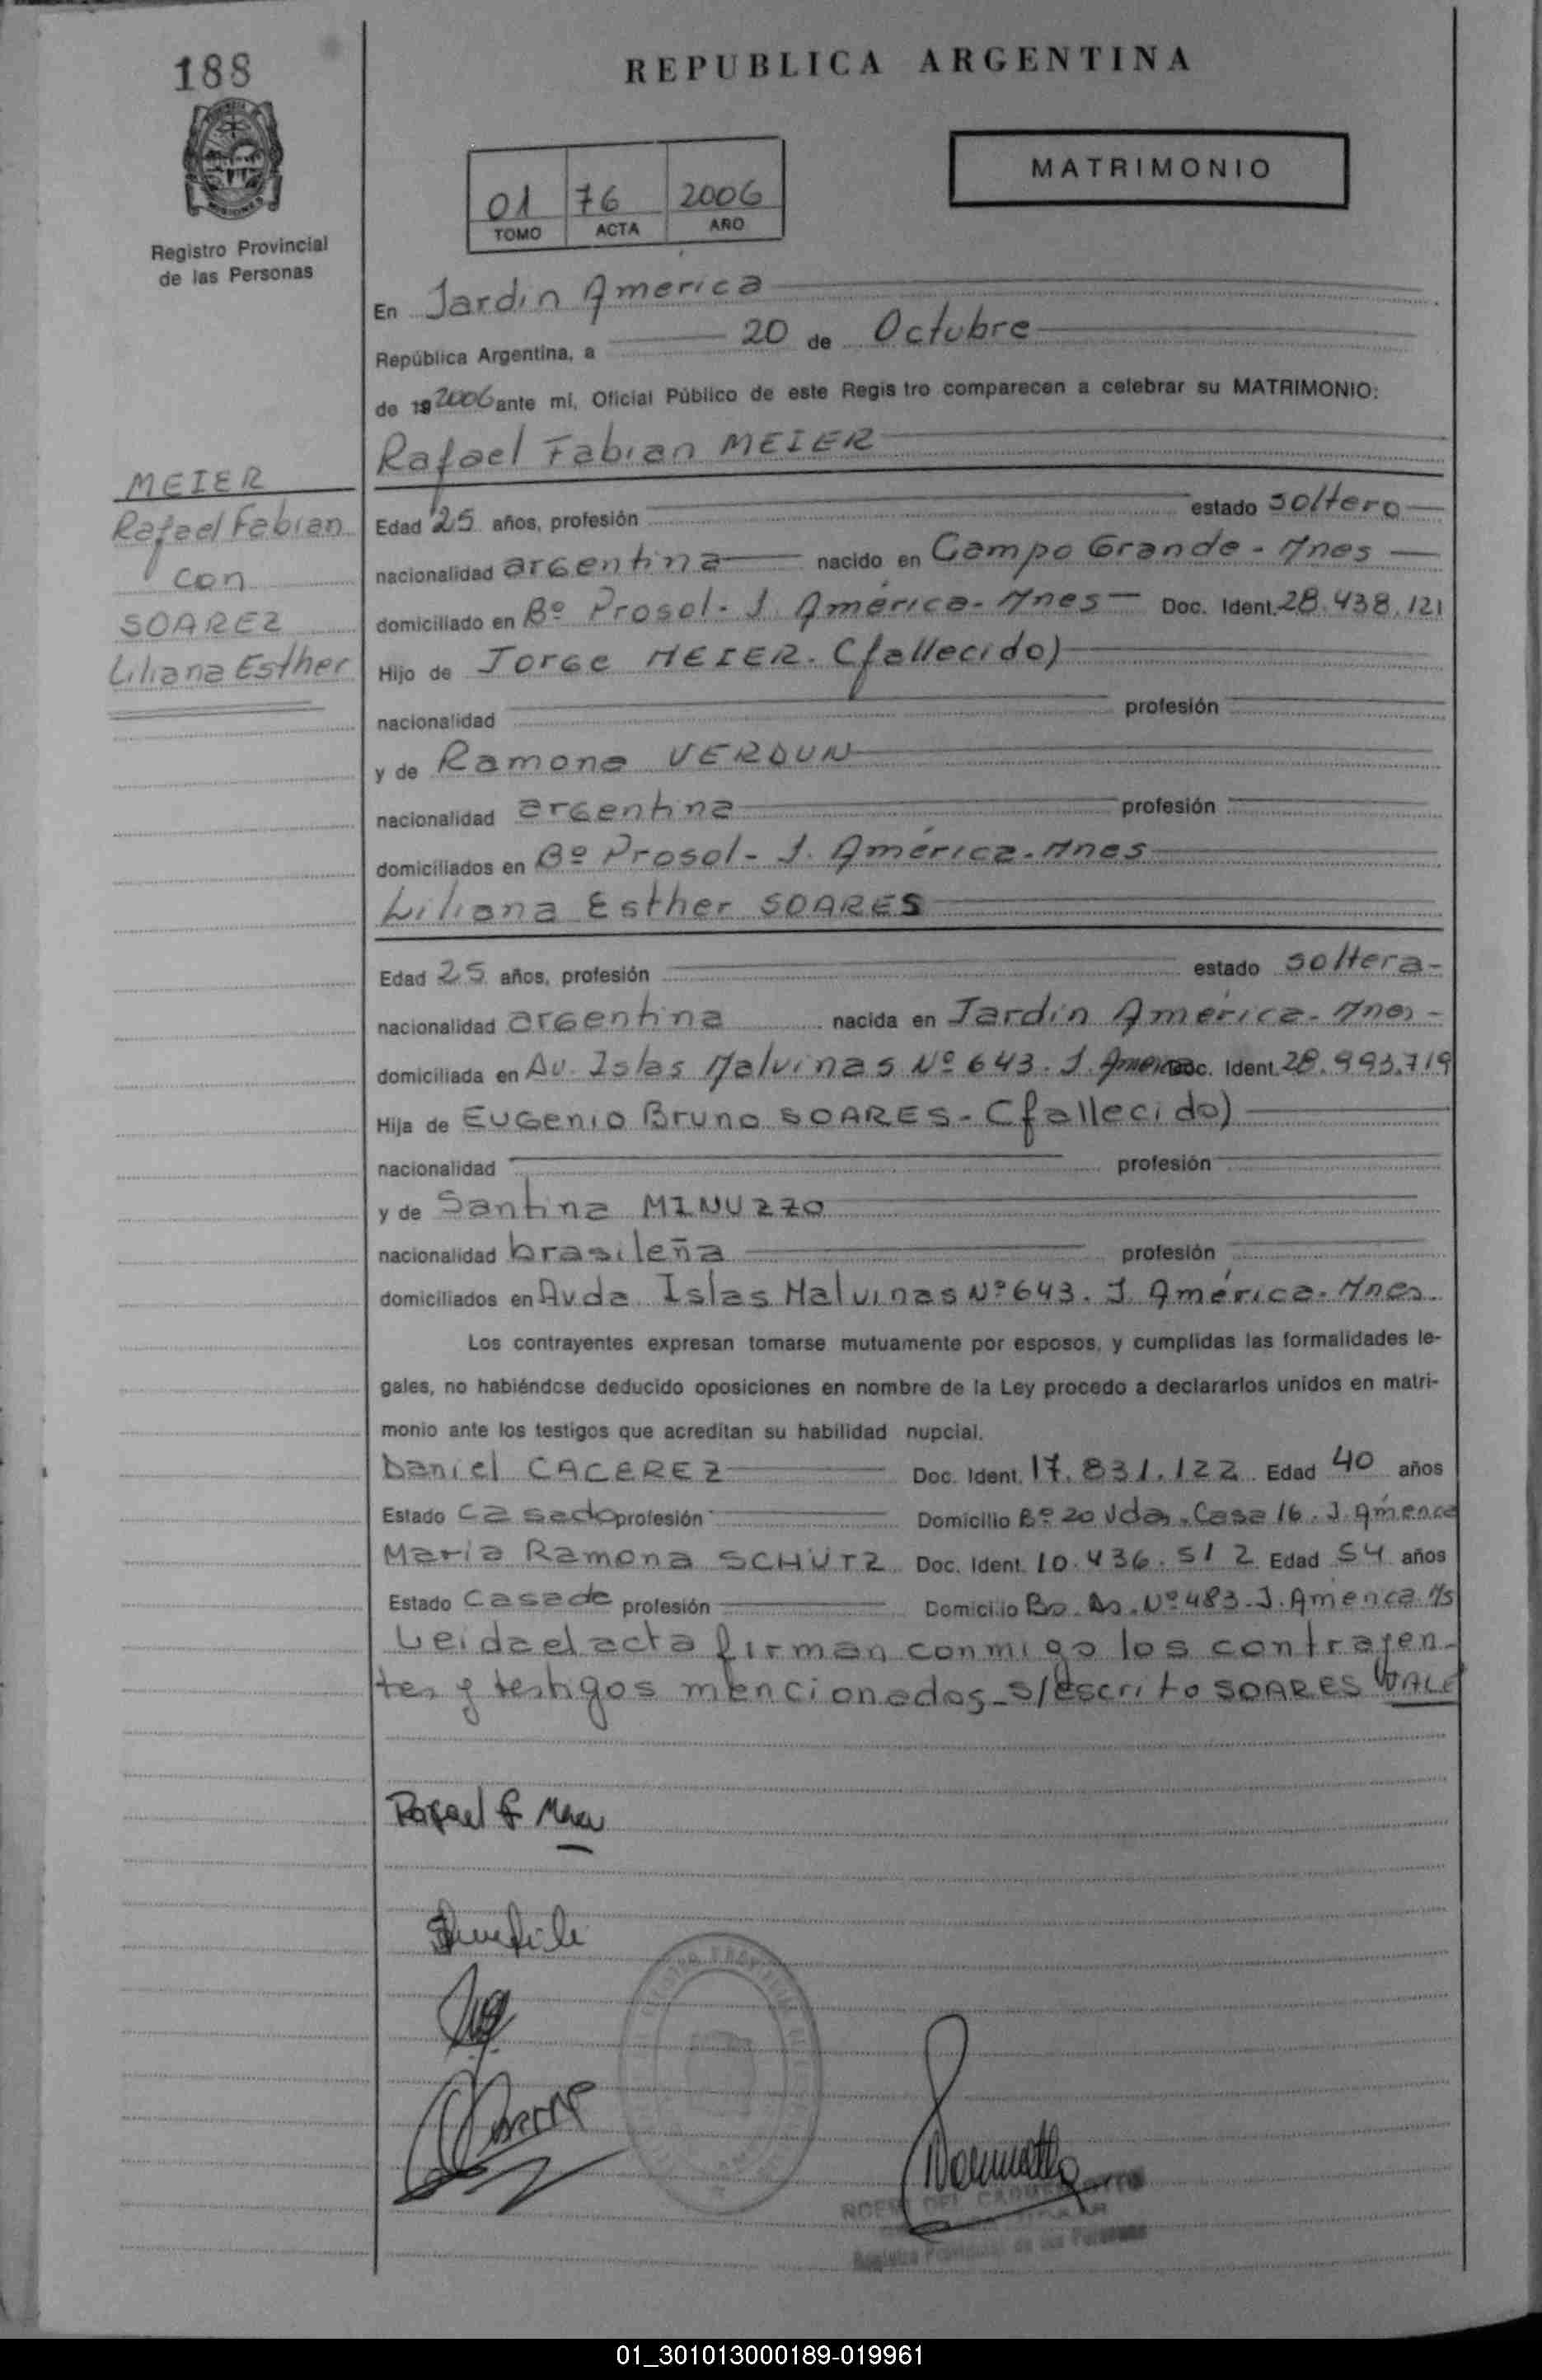 188
REPUBLICA ARGENTINA
MATRIMONIO
01 76 2006
TOMO ACTA AÑO
Registro Provincial
de las Personas
En Jardin America
República Argentina, a 20 de Octubre
de 19 2006 ante mi, Oficial Público de este Registro comparecen a celebrar su MATRIMONIO:
Rafael Fabian MEIER
MEIER
Rafael Fabian
con
SOAREZ
Liliana Esther
Edad 25 años, profesión estado soltero
nacionalidad argentina nacido en Campo Grande - Mnes
domiciliado en Bº Prosol - J. América - Mnes Doc. Ident. 28.438.121
Hijo de Jorge MEIER. (fallecido)
nacionalidad profesión
y de Ramona VERDUN
nacionalidad argentina profesión
domiciliados en Bº Prosol - J. América - Mnes
Liliana Esther SOARES
Edad 25 años, profesión estado soltera
nacionalidad argentina nacida en Jardin América - Mnes -
domiciliada en Av. Islas Malvinas Nº 643. J. America Doc. Ident. 28.993.719
Hija de Eugenio Bruno SOARES - (fallecido)
nacionalidad profesión
y de Santina MINUZZO
nacionalidad brasileña profesión
domiciliados en Avda Islas Malvinas Nº 643. J. América - Mnes.
Los contrayentes expresan tomarse mutuamente por esposos, y cumplidas las formalidades le-
gales, no habiéndose deducido oposiciones en nombre de la Ley procedo a declararlos unidos en matri-
monio ante los testigos que acreditan su habilidad nupcial.
Daniel CACEREZ Doc. Ident. 17.831.122 Edad 40 años
Estado casado profesión Domicilio Bº 20 Vdas. Casa 16. J. América
Maria Ramona SCHUTZ Doc. Ident. 10.436.512 Edad 54 años
Estado Casada profesión Domicilio Bo. As. Nº 483. J. America Ms
Leida el acta firman conmigo los contrayen-
tes y testigos mencionados - s/escrito SOARES VALE
Rafael F Meier
Registro Provincial de las Personas
01_301013000189-019961